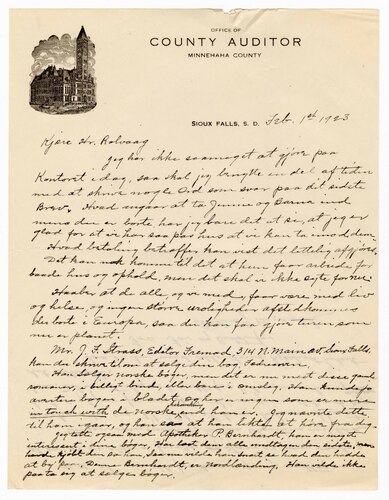 OFFICE OF
COUNTY AUDITOR
MINNEHAHA COUNTY
SIOUX FALLS, S. D. Feb. 1st 1923
Kjære Hr. Rolvaag
Jeg har ikke saameget at gjøre paa
Kontoret i dag, saa skal jeg bruge en del af tiden
med at skrive nogle Ord som svar paa dit sidste
Brev. Hvad angaar at ta Jennie og Barna ind
mens den er borte har jeg bare det at si, at jeg er
glad for at vi har saa pas hus at vi kan ta imod dem.
Hvad betaling betræffer kan vist det letteligt afgjøres.
Det kan nok komme til det at hun faar arbeide for
baade hus og ophold, men det skal vi ikke sige for nei.
Haaber at de alle, og vi med, faar være med liv
og helse, og ingen større uroligheder afstedkommes
derborte i Europa, saa du kan faa gjøre turen som
den er planet.
Mr. J. F. Strass, Editor Fremad, 314 N. Main av, Sioux Falls,
kan du skrive til om at sælge din bog, Fædrearven.
Han sælger norske bøger, men dit er mest disse gamle
romaner, i billigt bind, eller bare i omslag. Han kunde jo
avertere bogen i bladet, og her er ingen som er mere
in touch with de Norske, end han er. Jeg nævnte dette
til ham igaar, og han sa at han likte at høre fra dig.
Jeg talte ogsaa med Apotheker P. Bernhardt, han er meget
interessert i dine bøger. Han læst dem alle undtagen den sidste,
at by per. Denne Bernhardt, er Nordlænding. Han vilde ikke
paata sig at sælge bøger.